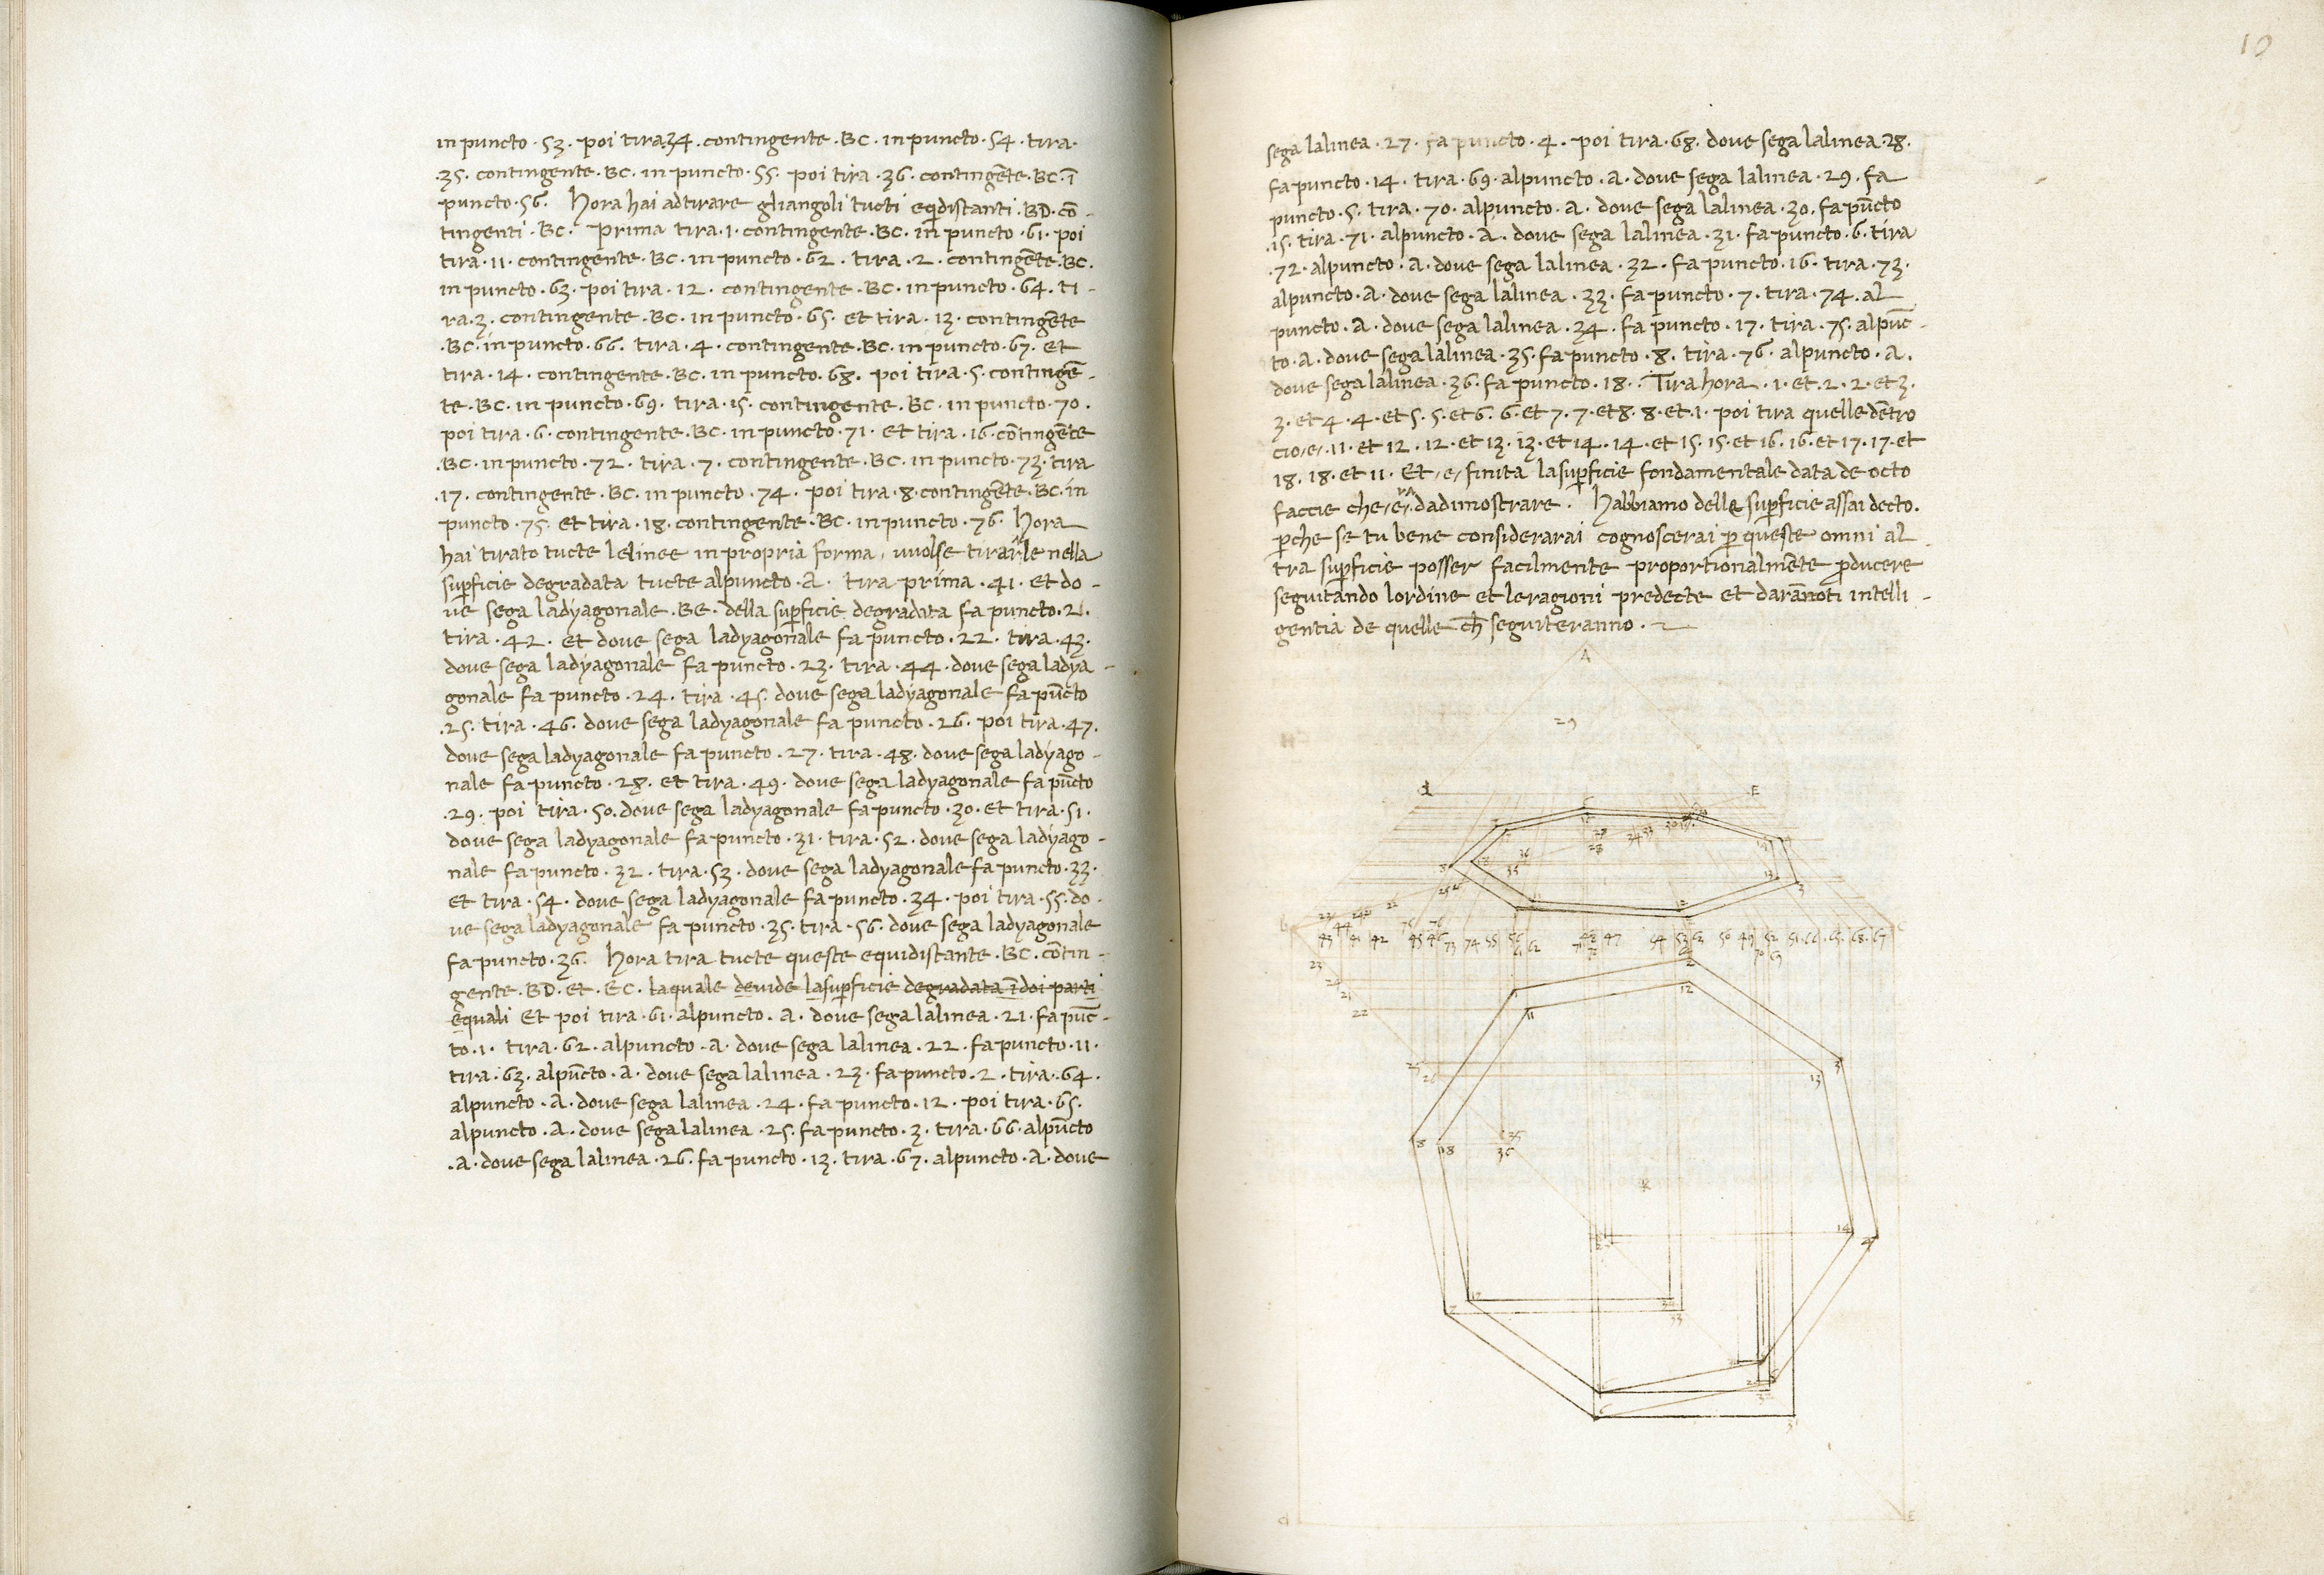 in puncto · 53 · poi tira 34 · contingente · BC · in puncto · 54 · tira ·
· 35 · contingente · BC · in puncto · 55 · poi tira · 36 · contingēte · BC · ī
puncto · 56 · Hora hai adtirare gliangoli tucti eqdistanti · BD · cō-
tingenti · BC · prima tira · 1 · contingente · BC · in puncto · 61 · poi
tira · 11 · contingente · BC · in puncto · 62 · tira · 2 · contingēte · BC ·
in puncto · 63 · poi tira · 12 · contingente · BC · in puncto · 64 · ti-
ra · 3 · contingente · BC · in puncto · 65 · et tira · 13 · contingēte
· BC · in puncto · 66 · tira · 4 · contingente · BC · in puncto · 67 · et
tira · 14 · contingente · BC · in puncto · 68 · poi tira · 5 · contingē-
te · BC · in puncto · 69 · tira · 15 · contingente · BC · in puncto · 70 ·
poi tira · 6 · contingente · BC · in puncto · 71 · et tira · 16 · cōtingēte
· BC · in puncto · 72 · tira · 7 · contingente · BC · in puncto · 73 · tira
· 17 · contingente · BC · in puncto · 74 · poi tira · 8 · contingēte · BC · in
puncto · 75 · et tira · 18 · contingente · BC · in puncto · 76 · Hora
hai tirato tucte lelinee in propria forma, vuolse tirarle nella
supficie degradata tucte alpuncto · A · tira prima · 41 · et do-
ve sega ladyagonale · BE · della supficie degradata fa puncto · 21 ·
tira · 42 · et dove sega ladyagonale fa puncto · 22 · tira · 43 ·
dove sega ladyagonale fa puncto · 23 · tira · 44 · dove sega ladya-
gonale fa puncto · 24 · tira · 45 · dove sega ladyagonale fa pūcto
· 25 · tira · 46 · dove sega ladyagonale fa puncto · 26 · poi tira · 47 ·
dove sega ladyagonale fa puncto · 27 · tira · 48 · dove sega ladyago-
nale fa puncto · 28 · et tira · 49 · dove sega ladyagonale fa pūcto
· 29 · poi tira · 50 · dove sega ladyagonale fa puncto · 30 · et tira · 51 ·
dove sega ladyagonale fa puncto · 31 · tira · 52 · dove sega ladyago-
nale fa puncto · 32 · tira · 53 · dove sega ladyagonale fa puncto · 33 ·
et tira · 54 · dove sega ladyagonale fa puncto · 34 · poi tira · 55 · do-
ve sega ladyagonale fa puncto · 35 · tira · 56 · dove sega ladyagonale
fa puncto · 36 · Hora tira tucte queste equidistante · BC · cōtin-
gente · BD · et · EC · laquale devide lasupficie degradata ī doi parti
equali Et poi tira · 61 · alpuncto · A · dove sega lalinea · 21 · fa pūc-
to · 1 · tira · 62 · alpuncto · A · dove sega lalinea · 22 · fa puncto · 11 ·
tira · 63 · alpūcto · A · dove sega lalinea · 23 · fa puncto · 2 · tira · 64 ·
alpuncto · A · dove sega lalinea · 24 · fa puncto · 12 · poi tira · 65 ·
alpuncto · A · dove sega lalinea · 25 · fa puncto · 3 · tira · 66 · alpūcto
· A · dove sega lalinea · 26 · fa puncto · 13 · tira · 67 · alpuncto · A · dove
10
sega lalinea · 27 · fa puncto · 4 · poi tira · 68 · dove sega lalinea · 28 ·
fa puncto · 14 · tira · 69 · alpuncto · A · dove sega lalinea · 29 · fa
puncto · 5 · tira · 70 · alpuncto · A · dove sega lalinea · 30 · fa pūcto
· 15 · tira · 71 · alpuncto · A · dove sega lalinea · 31 · fa puncto · 6 · tira
· 72 · alpuncto · A · dove sega lalinea · 32 · fa puncto · 16 · tira · 73 ·
alpuncto · A · dove sega lalinea · 33 · fa puncto · 7 · tira · 74 · al
puncto · A · dove sega lalinea · 34 · fa puncto · 17 · tira · 75 · alpūc-
to · A · dove sega lalinea · 35 · fa puncto · 8 · tira · 76 · alpuncto · A ·
dove sega lalinea · 36 · fa puncto · 18 · Tira hora · 1 · et · 2 · 2 · et 3 ·
3 · et 4 · 4 · et 5 · 5 · et 6 · 6 · et 7 · 7 · et 8 · 8 · et · 1 · poi tira quelle dētro
cio/e/ · 11 · et 12 · 12 · et 13 · 13 · et 14 · 14 · et 15 · 15 · et 16 · 16 · et 17 · 17 · et
18 · 18 · et 11 · Et /e/ finita lasupficie fondamentale data de octo
faccie che /e/ dadimostrare · Habbiamo delle supficie assai decto ·
pche se tu bene considerarai cognoscerai p queste omni al-
tra supficie posser facilmente proportionalmēte producere
seguitando lordine et leragioni predecte et darannoti intelli-
gentia de quelle ch̄ seguiteranno ·
A
29
d E
B C
43 41 42 45 46 73 74 55 56 62 47 54 53 63 50 49 52 51 66 65 68 67
23
24
21
22
25
26
1 2 3 4 7 8
11 12 13 14 17 18
35
36
K
33
31
d E